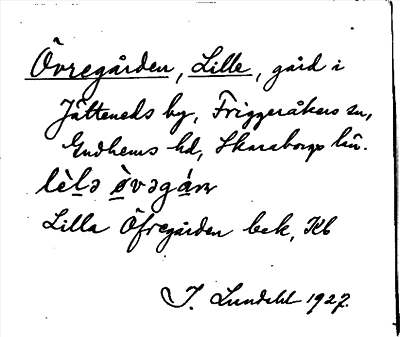 Övregården, Lille, gård i
Jätteneds by, Friggeråkers sn,
Gudhems hd, Skaraborgs län.
lèlə ø̀vəgán
Lilla Öfregården bek, Kb
I. Lundahl 1927.